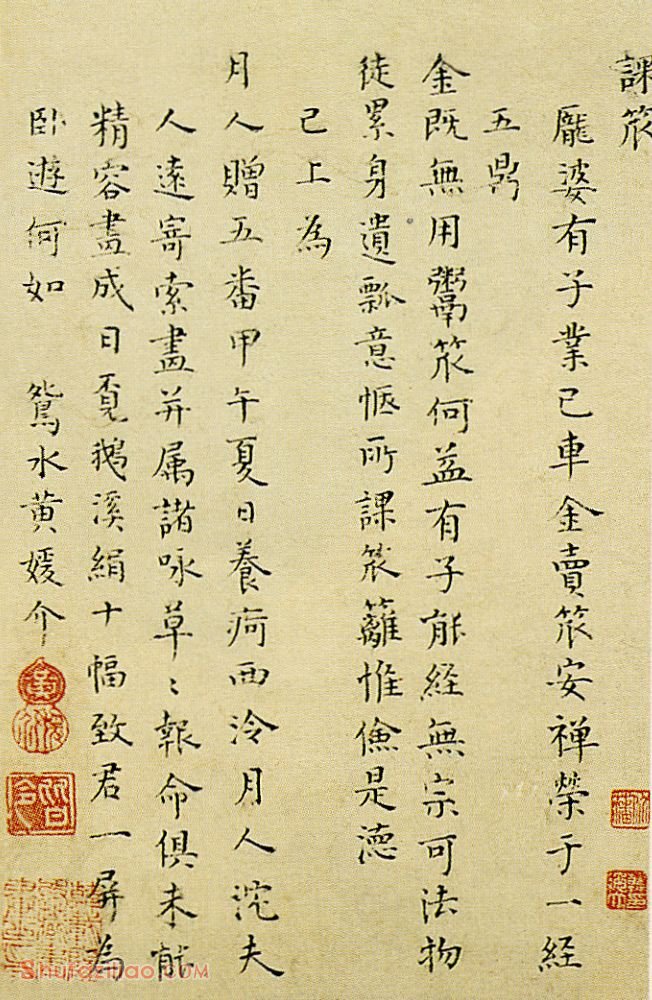 課笊
龐婆有子業已車金賣笊安禪榮于一經
五鼎
金既無用鬻笊何益有子能經無宗可法物
徒累身遺瓢意愜所課笊籬惟儉是德
已上為
月人贈五番甲午夏日養疴西泠月人沱夫
人遠寄索畫并属諸咏草〻報命俱未能
精容畫成日覔鵝溪絹十幅致君一屏為
臥遊何如 鴛水黄媛介